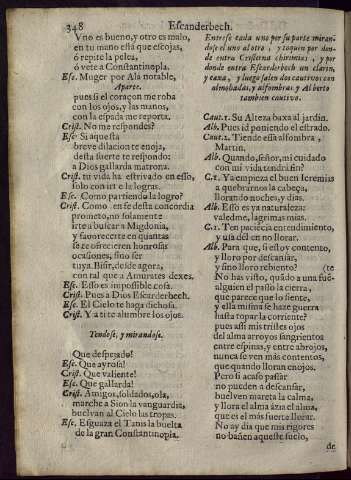 348
Escanderbech.
Vno es bueno, y otro es malo,
en tu mano està que escojas,
ó repite la pelea,
ó vete a Constantinopla.
Esc. Muger por Ala notable,
Aparte.
pues si el coraçon me roba
con los ojos, y las manos,
con la espada me reporta.
Crist. No me respondes?
Esc. Si aquesta
breve dilacion te enoja,
desta suerte te respondo:
a Dios gallarda matrona.
Crist. tu vida ha estrivado en esso,
solo con irte la logras.
Esc. Como partiendo la logro?
Crist. Como en fe desta concordia
prometo, no solamente
irte a buscar a Migdonia,
y favorecerte en quantas
se te ofrecieren honrosas
ocasiones, sino ser
tuya. Esc. desde agora,
con tal que a Amurates dexes.
Esc. Esso es impossible cosa.
Crist. Pues a Dios Escanderbech.
Esc. El Cielo te haga dichosa.
Crist. Y a ti te alumbre los ojos.
Tendose, y mirandose.
Que despejado!
Esc. Que ayrosa!
Crist. Que valiente!
Esc. Que gallarda!
Crist. Amigos, soldados, ola,
marche a Sion la vanguardia,
buelvan al Cielo las tropas.
Esc. Esguaza el Tanis la buelta
de la gran Constantinopla.
Entrese cada uno por su parte mirandose
el uno al otro, y toquen por donde
entra Cristerna chirimias, y por
donde entra Escanderbech un clarin,
y caxa, y luego salen dos cautivos con
almohadas, y alfombras y Alberto
tambien cautivo.
Caut. 1. Su Alteza baxa al jardin.
Alb. Pues id poniendo el estrado.
Caut. 2. Tiende essa alfombra,
Martin.
Alb. Quando, señor, mi cuidado
con mi vida tendrà fin?
C. 1. Ya empieza el buen Ieremias
a quebrarnos la cabeça,
llorando noches, y dias.
Alb. Esso es ya naturaleza:
valedme, lagrimas mias.
C. 1. Ten paciẽcia entendimiento,
y usa dèl en no llorar.
Alb. Para que, si estoy contento,
y lloro por descansar,
y sino lloro rebiento? (te
No has visto, quãdo a una fuẽ-
alguien el passo la cierra,
que parece que lo siente,
y ella misma se haze guerra
hasta topar la corriente?
pues assi mis tristes ojos
del alma arroyos sangrientos
entre espinas, y entre abrojos,
nunca se ven mas contentos,
que quando lloran enojos.
Pero si acaso passar
no pueden a descansar,
buelven mareta la calma,
y llora el alma àzia el alma,
que es el mas fuerte llorar.
No ay dia que mis rigores
no bañen aqueste suelo,
de